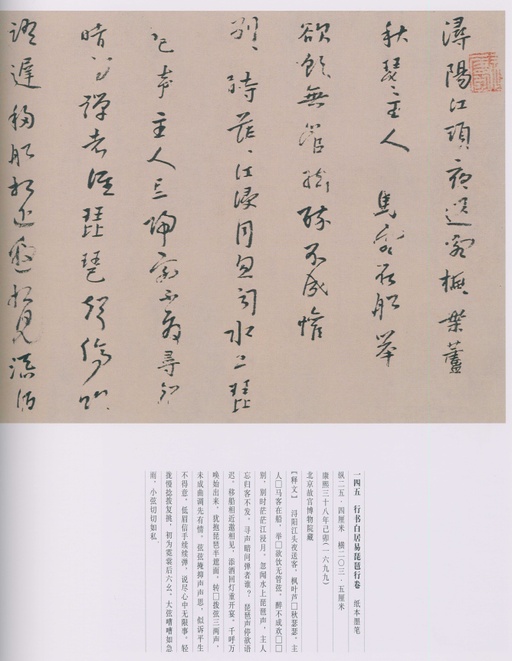 潯陽江頭夜送客楓葉蘆
秋瑟〻主人 馬客在船舉
欲飲無管絃醉不成懽
別〻時茫〻江浸月忽聞水上琵
琶聲主人忘歸客不發尋聲
暗問彈者誰琵琶聲停欲
語遲移船相近邀相見添酒
一四五 行书白居易琵琶行卷 纸本墨笔
纵二五·四厘米 横二〇三·五厘米
康熙三十八年己卯(一六九九)
北京故宫博物院藏
【释文】 浔阳江头夜送客,枫叶芦□秋瑟瑟。主
人□马客在船,举□欲饮无管弦,醉不成欢□□
别,别时茫茫江浸月。忽闻水上琵琶声,主人
忘归客不发,寻声暗问弹者谁?琵琶声停欲语
迟。移船相近邀相见,添酒回灯重开宴。千呼万
唤始出来,犹抱琵琶半遮面,转□拨弦三两声,
未成曲调先有情。弦弦掩抑声声思,似诉平生
不得意。低眉信手续续弹,说尽心中无限事,轻
拢慢捻拨复挑,初为霓裳后六幺。大弦嘈嘈如急
雨,小弦切切如私